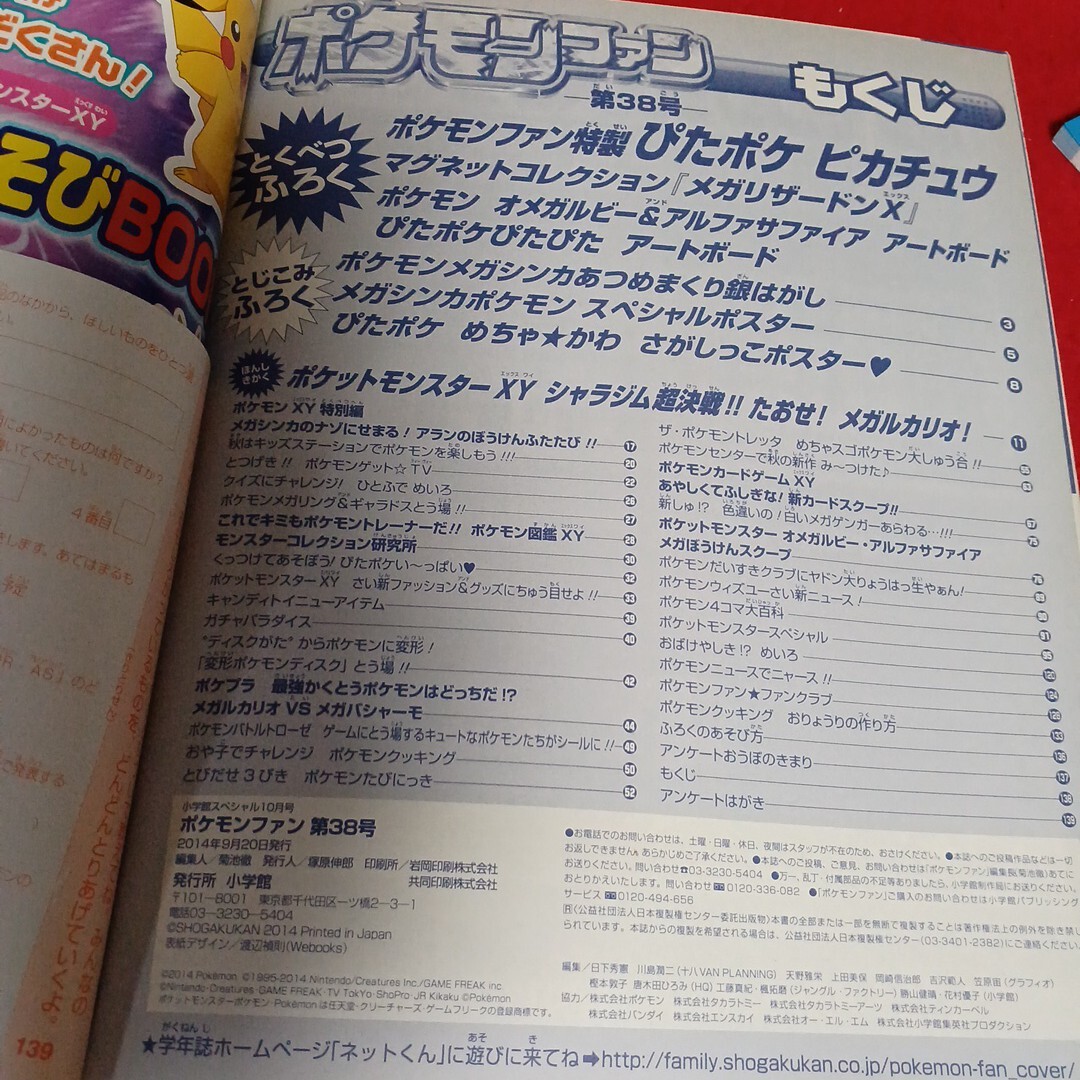 くさん！
ンスターXY
そびBOO
品のなかから、ほしいものをひとつ選
4番目
139
ポケモンファン もくじ
第38号
とくべつ
ふろく
ポケモンファン特製 ぴたポケ ピカチュウ
マグネットコレクション『メガリザードンX』
ポケモン オメガルビー&アルファサファイア アートボード
ぴたポケぴたぴた アートボード
とじこみ
ふろく
ポケモンメガシンカあつめまくり銀はがし 3
メガシンカポケモン スペシャルポスター 5
ぴたポケ めちゃ★かわ さがしっこポスター♥ 8
ほんし
きかく
ポケットモンスター XY シャラジム超決戦!! たおせ! メガルカリオ! 11
ポケモン XY 特別編
メガシンカのナゾにせまる! アランのぼうけんふたたび!! 17
秋はキッズステーションでポケモンを楽しもう!!! 20
とつげき!! ポケモンゲット☆TV 22
クイズにチャレンジ! ひとふで めいろ 26
ポケモンメガリング&ギャラドスとう場!! 27
これでキミもポケモントレーナーだ!! ポケモン図鑑 XY 28
モンスターコレクション研究所 30
くっつけてあそぼう! ぴたポケい〜っぱい♥ 32
ポケットモンスター XY さい新ファッション&グッズにちゅう目せよ!! 33
キャンディトイニューアイテム 39
ガチャパラダイス 40
"ディスクがた"からポケモンに変形!
「変形ポケモンディスク」とう場!! 42
ポケプラ 最強かくとうポケモンはどっちだ!?
メガルカリオ VS メガバシャーモ 44
ポケモンバトルトローゼ ゲームにとう場するキュートなポケモンたちがシールに!! 49
おや子でチャレンジ ポケモンクッキング 50
とびだせ3びき ポケモンたびにっき 52
ザ・ポケモントレッタ めちゃスゴポケモン大しゅう合!!
ポケモンセンターで秋の新作 み〜つけた♪
ポケモンカードゲーム XY
あやしくてふしぎな! 新カードスクープ!! 67
新しゅ!? 色違いの!白いメガゲンガーあらわる…!!! 75
ポケットモンスター オメガルビー・アルファサファイア
メガぼうけんスクープ
ポケモンだいすきクラブにヤドン大りょうはっ生やぁん!
ポケモンウィズユーさい新ニュース!
ポケモン4コマ大百科
ポケットモンスタースペシャル 91
おばけやしき!? めいろ 95
ポケモンニュースでニャース!! 120
ポケモンファン★ファンクラブ 124
ポケモンクッキング おりょうりの作り方
ふろくのあそび方 133
アンケートおうぼのきまり 136
もくじ 137
アンケートはがき
139
小学館スペシャル10月号
ポケモンファン 第38号
2014年9月20日発行
編集人／菊池徹 発行人／塚原伸郎 印刷所／岩岡印刷株式会社
発行所 小学館 共同印刷株式会社
〒101-8001 東京都千代田区一ツ橋2-3-1
電話03-3230-5404
©SHOGAKUKAN 2014 Printed in Japan
表紙デザイン／渡辺禎則(Webooks)
©2014 Pokémon. ©1995-2014 Nintendo/Creatures Inc./GAME FREAK inc.
©Nintendo・Creatures・GAME FREAK・TV Tokyo・ShoPro・JR Kikaku ©Pokémon
ポケットモンスター・ポケモン・Pokémonは任天堂・クリーチャーズ・ゲームフリークの登録商標です。
●お電話でのお問い合わせは、土曜・日曜・休日、夜間はスタッフが不在のため、おさけください。●本誌へのご投稿作品などは一切
お返しできません。あらかじめご了承ください。●本誌へのご投稿、ご意見、お問い合わせは「ポケモンファン」編集長(菊池徹)あてに
お送りください。問い合わせ☎03-3230-5404 ●万一、乱丁・付属部品の不足等ありましたら、小学館制作局にお送りください。
おとりかえいたします。問い合わせ 0120-336-082 ●「ポケモンファン」ご購入のお問い合わせは小学館パブリッシング・
サービス 0120-494-656
R(公益社団法人日本複製権センター委託出版物)本書の全部または一部を無断で複写することは著作権法上の例外を除き禁じ
られています。本誌からの複製を希望される場合は、公益社団法人日本複製権センター(03-3401-2382)にご連絡ください。
編集／日下秀憲 川島潤二(十八VAN PLANNING) 天野雅栄 上田美保 岡崎信治郎 吉沢範人 笠原宙(グラフィオ)
樫本敦子 唐木田ひろみ(HQ) 工藤真紀・楓拓磨(ジャングル・ファクトリー) 勝山健晴・花村優子(小学館)
協力／株式会社ポケモン 株式会社タカラトミー 株式会社タカラトミーアーツ 株式会社ティンカーベル
株式会社バンダイ 株式会社エンスカイ 株式会社オー・エル・エム 株式会社小学館集英社プロダクション
★学年誌ホームページ「ネットくん」に遊びに来てね➡http://family.shogakukan.co.jp/pokemon-fan_cover/